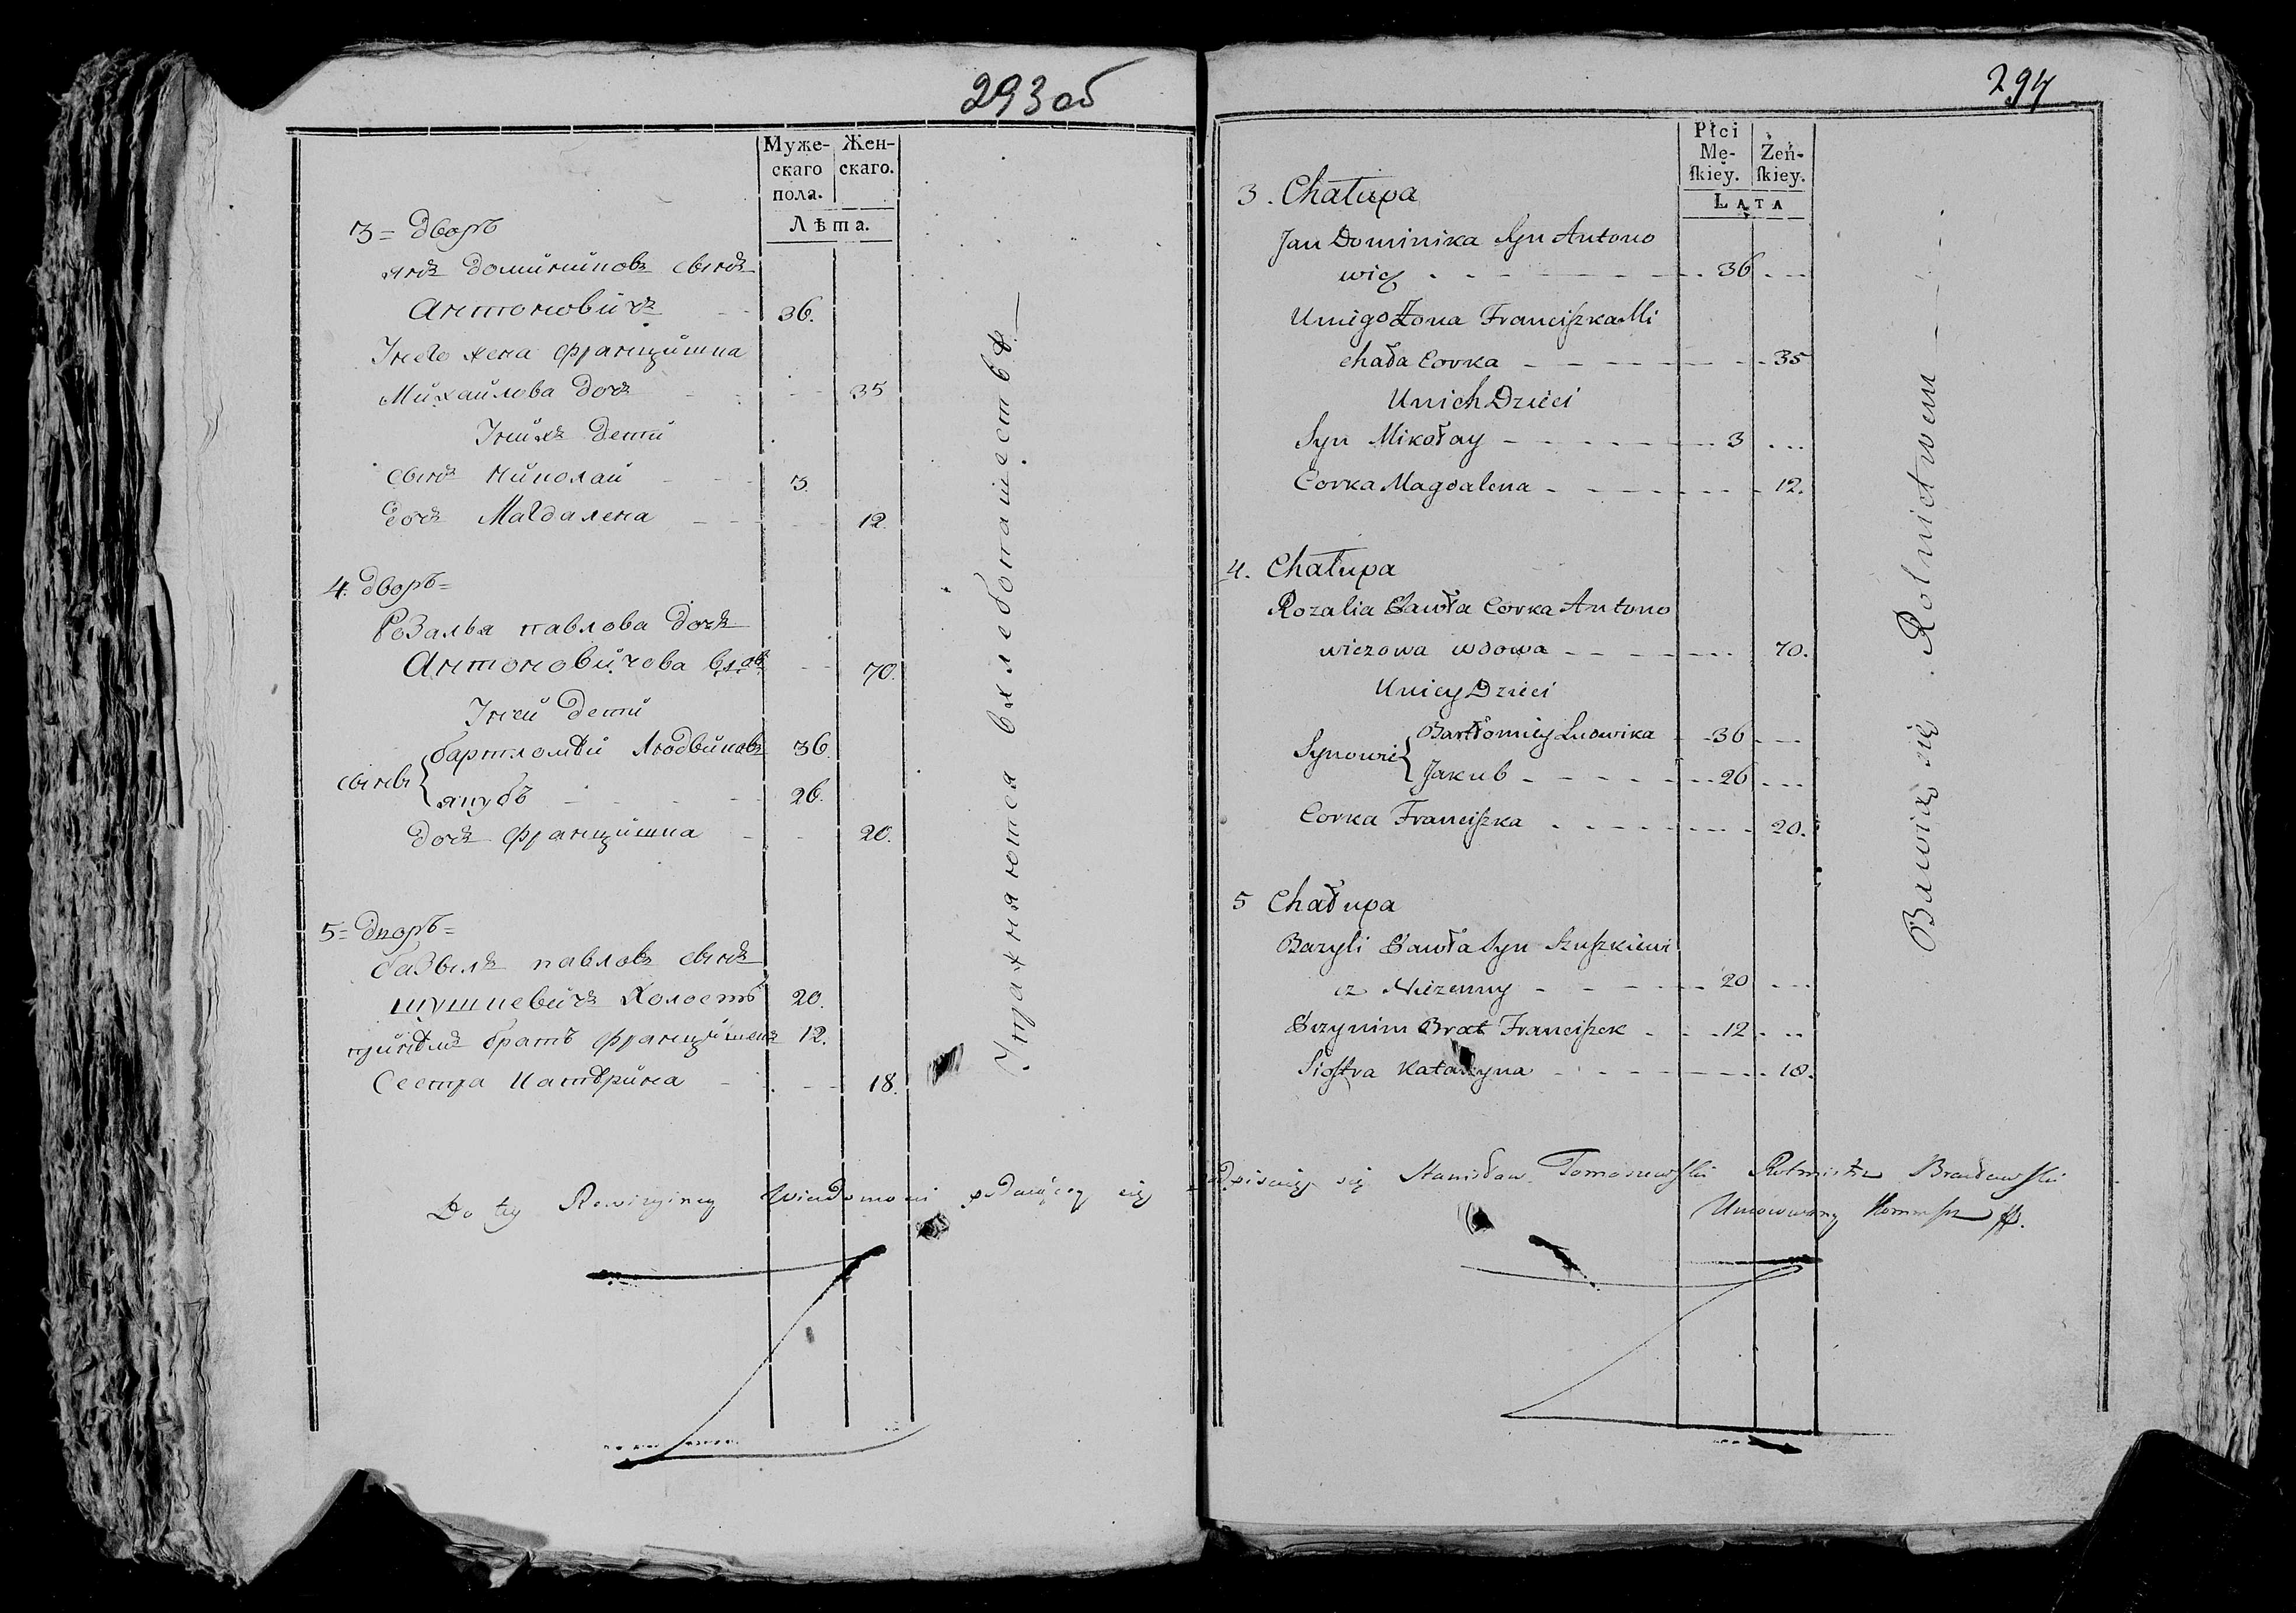 293 об
Муже- Жен-
скаго скаго.
пола.
Лѣта.
3= дворъ
янъ доминиковъ сынъ
Антоновичъ 36.
Унего жена францишка
Михайлова дочъ 35
Унихъ дети
сынъ николай 3.
дочъ Магдалена 12.
4. дворъ=
Розалья павлова дочъ
Антоновичова вдова 70.
Уней дети
сынове { бартломѣй Людвиковъ 36.
якубъ 26.
дочъ францишка 20.
5= дворъ=
базыль павловъ сынъ
шушкевичъ холостъ 20.
принемъ братъ францишекъ 12.
Сестра катѣрина 18.
Упражняются вхлебопашествѣ
Do tey Rewizyiney Wiadomosci podaiącey się
294
Płci
Mę- Żeń-
skiey. skiey.
LATA
3. Chałupa
Jan Dominika Syn Antono
wicz 36
Uniego Żona Franciszka Mi
chała Corka 35
Unich Dzieci
Syn Mikołay 3
Corka Magdalena 12.
4. Chałupa
Rozalia Pawła Corka Antono
wiczowa wdowa 70.
Uniey Dzieci
Synowie { Bartłomiey Ludwika 36
Jakub 26
Corka Franciszka 20.
5 Chałupa
Bazyli Pawła Syn Szuszkiewi
cz Nieżenny 20
Przynim Brat Franciszek 12
Siostra Katarzyna 18.
Bawią się Rolnictwem
podpisuię się Stanisław Tomaszewski Rotmistrz Brasławski